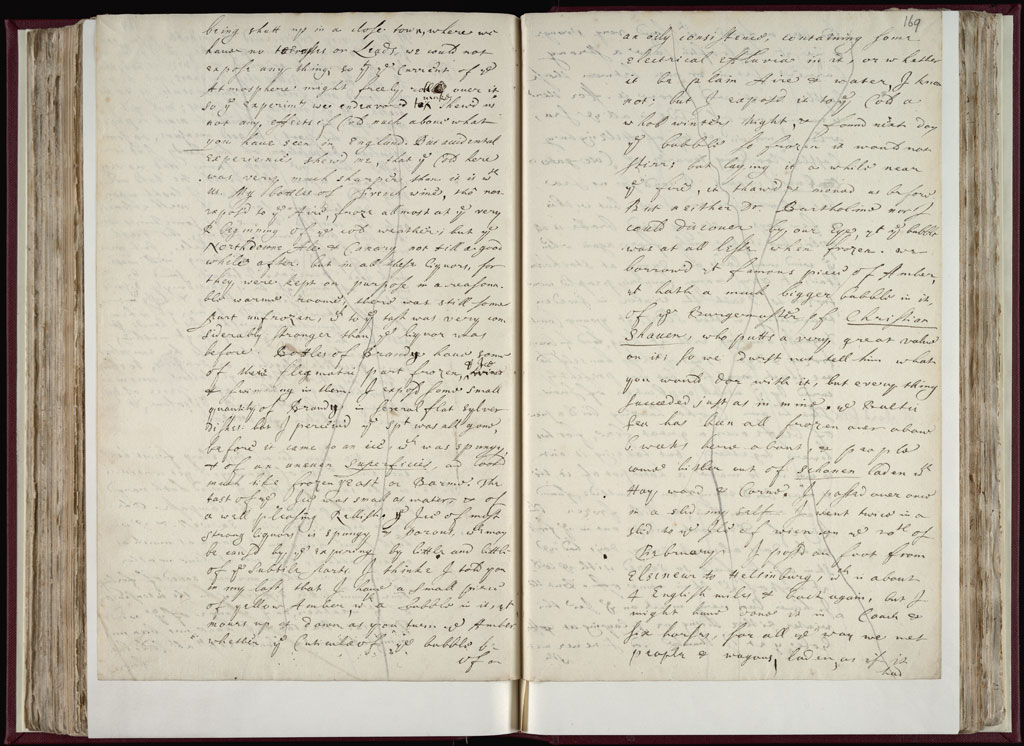 being shutt up in a close town, where we
haue no terrasses or Leads, we could not
expose any thing, so yt ye Current of ye
Atmosphere might freely over it
so ye Experimts we endeavord shewd us
not any effects of Cold much aboue what
you haue seen in England. But accidental
experience shewd me, that ye Cold here
was very much sharper than it is wth
us. My bottles of french wine, tho not
exposd to ye Aire, froze allmost at ye very
beginning of ye cold weather; but ye
Northdowne Ale & Canary not till a good
while after. but in all these liquors, for
they were kept on purpose in a reasona-
ble warme roome, there was still some
part unfrozen, & to ye tast was very con-
siderably stronger than ye liquor was
before. Bottles of Brandy haue some
of their flegmatic part frozen,
swimming in them. I exposd some small
quantity of Brandy in several flat sylver
Dishes but I perceiud ye spt was all gone,
before it came to an ice, wch was spongy,
& of an uneven Superficies, and lookd
much like frozen yeast or Barme. The
tast of ye Ice was small as water, & of
a well pleasing Rellish. ye Ice of most
strong liquors is spongy & porous. It may
be causd by ye expiring by little and little
of ye subtile parts. I thinke I told you
in my last that I haue a small piece
of yellow Amber wth a bubble in it, yt
moues up & down as you turn ye Amber
whether ye Cuticula of ye bubble b-
of an
169
an oily consistence, containing some
electrical Effluvia in it, or whether
it be plain Aire & water, I know
not; but I exposd it to ye Cold a
whole winters night, & found next day
ye bubble so frozen it would not
stirr; but laying it a while near
ye fire, it thawd & moued as before
But neither Dr. Bartholine nor I
could discouer by our Eye, yt ye bubble
was at all lesse when frozen. we
borrowd yt famous piece of Amber,
yt hath a much bigger bubble in it,
of ye Burgemaster of Christian
Shauen, who putts a very great value
on it; so we durst not tell him what
you would doe with it; but every thing
succeeded just as in mine. ye Baltic
sea has been all frozen over aboue
6 weeks here about, & people
come hither out of Schonen laden wth
Hay, wood & Corne. I passd over once
in a sled my self. I went twice in a
sled to ye Isle of ween upon ye 10th of
February. I passd on foot from
Elseneur to Helsinburg, wch is about
4 English miles & back again, but I
might haue done it in a Coach &
six horses, for all ye way we met
people & wagons, laden, as if it
had